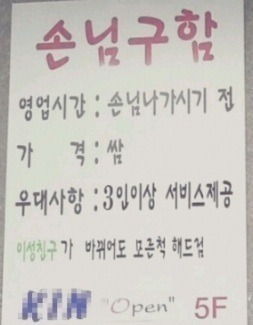 손님구함
영업시간 : 손님나가시기 전
가 격 : 쌈
우대사항 : 3인이상 서비스제공
이성친구가 바뀌어도 모른척 해드림
"Open" 5F